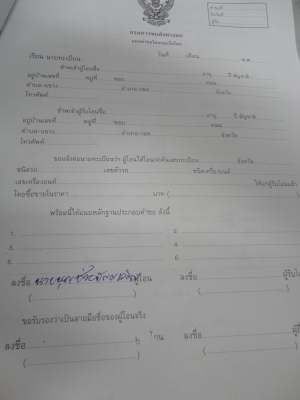 กรมการขนส่งทางบก
แบบคำขอโอนและรับโอน
เลขที่
รับวันที่
ผู้รับ
เรียน นายทะเบียน วันที่ เดือน พ.ศ.
ข้าพเจ้าผู้โอนชื่อ อายุ ปี สัญชาติ
อยู่บ้านเลขที่ หมู่ที่ ซอย ถนน
ตำบล/แขวง อำเภอ/เขต จังหวัด
โทรศัพท์
ข้าพเจ้าผู้รับโอนชื่อ อายุ ปี สัญชาติ
อยู่บ้านเลขที่ หมู่ที่ ซอย ถนน
ตำบล/แขวง อำเภอ/เขต จังหวัด
โทรศัพท์
ขอแจ้งต่อนายทะเบียนว่า ผู้โอนได้โอนรถคันเลขทะเบียน จังหวัด
ชนิดรถ เลขตัวรถ ชนิดเครื่องยนต์
เลขเครื่องยนต์ ให้แก่ผู้รับโอนแล้ว
โดยซื้อขายในราคา บาท (
พร้อมนี้ได้แนบหลักฐานประกอบคำขอ ดังนี้
1. 2.
3. 4.
5. 6.
ลงชื่อ ผู้โอน ลงชื่อ ผู้รับโ
( ) (
ขอรับรองว่าเป็นลายมือชื่อของผู้โอนจริง
ลงชื่อ ลงชื่อ
( ) (